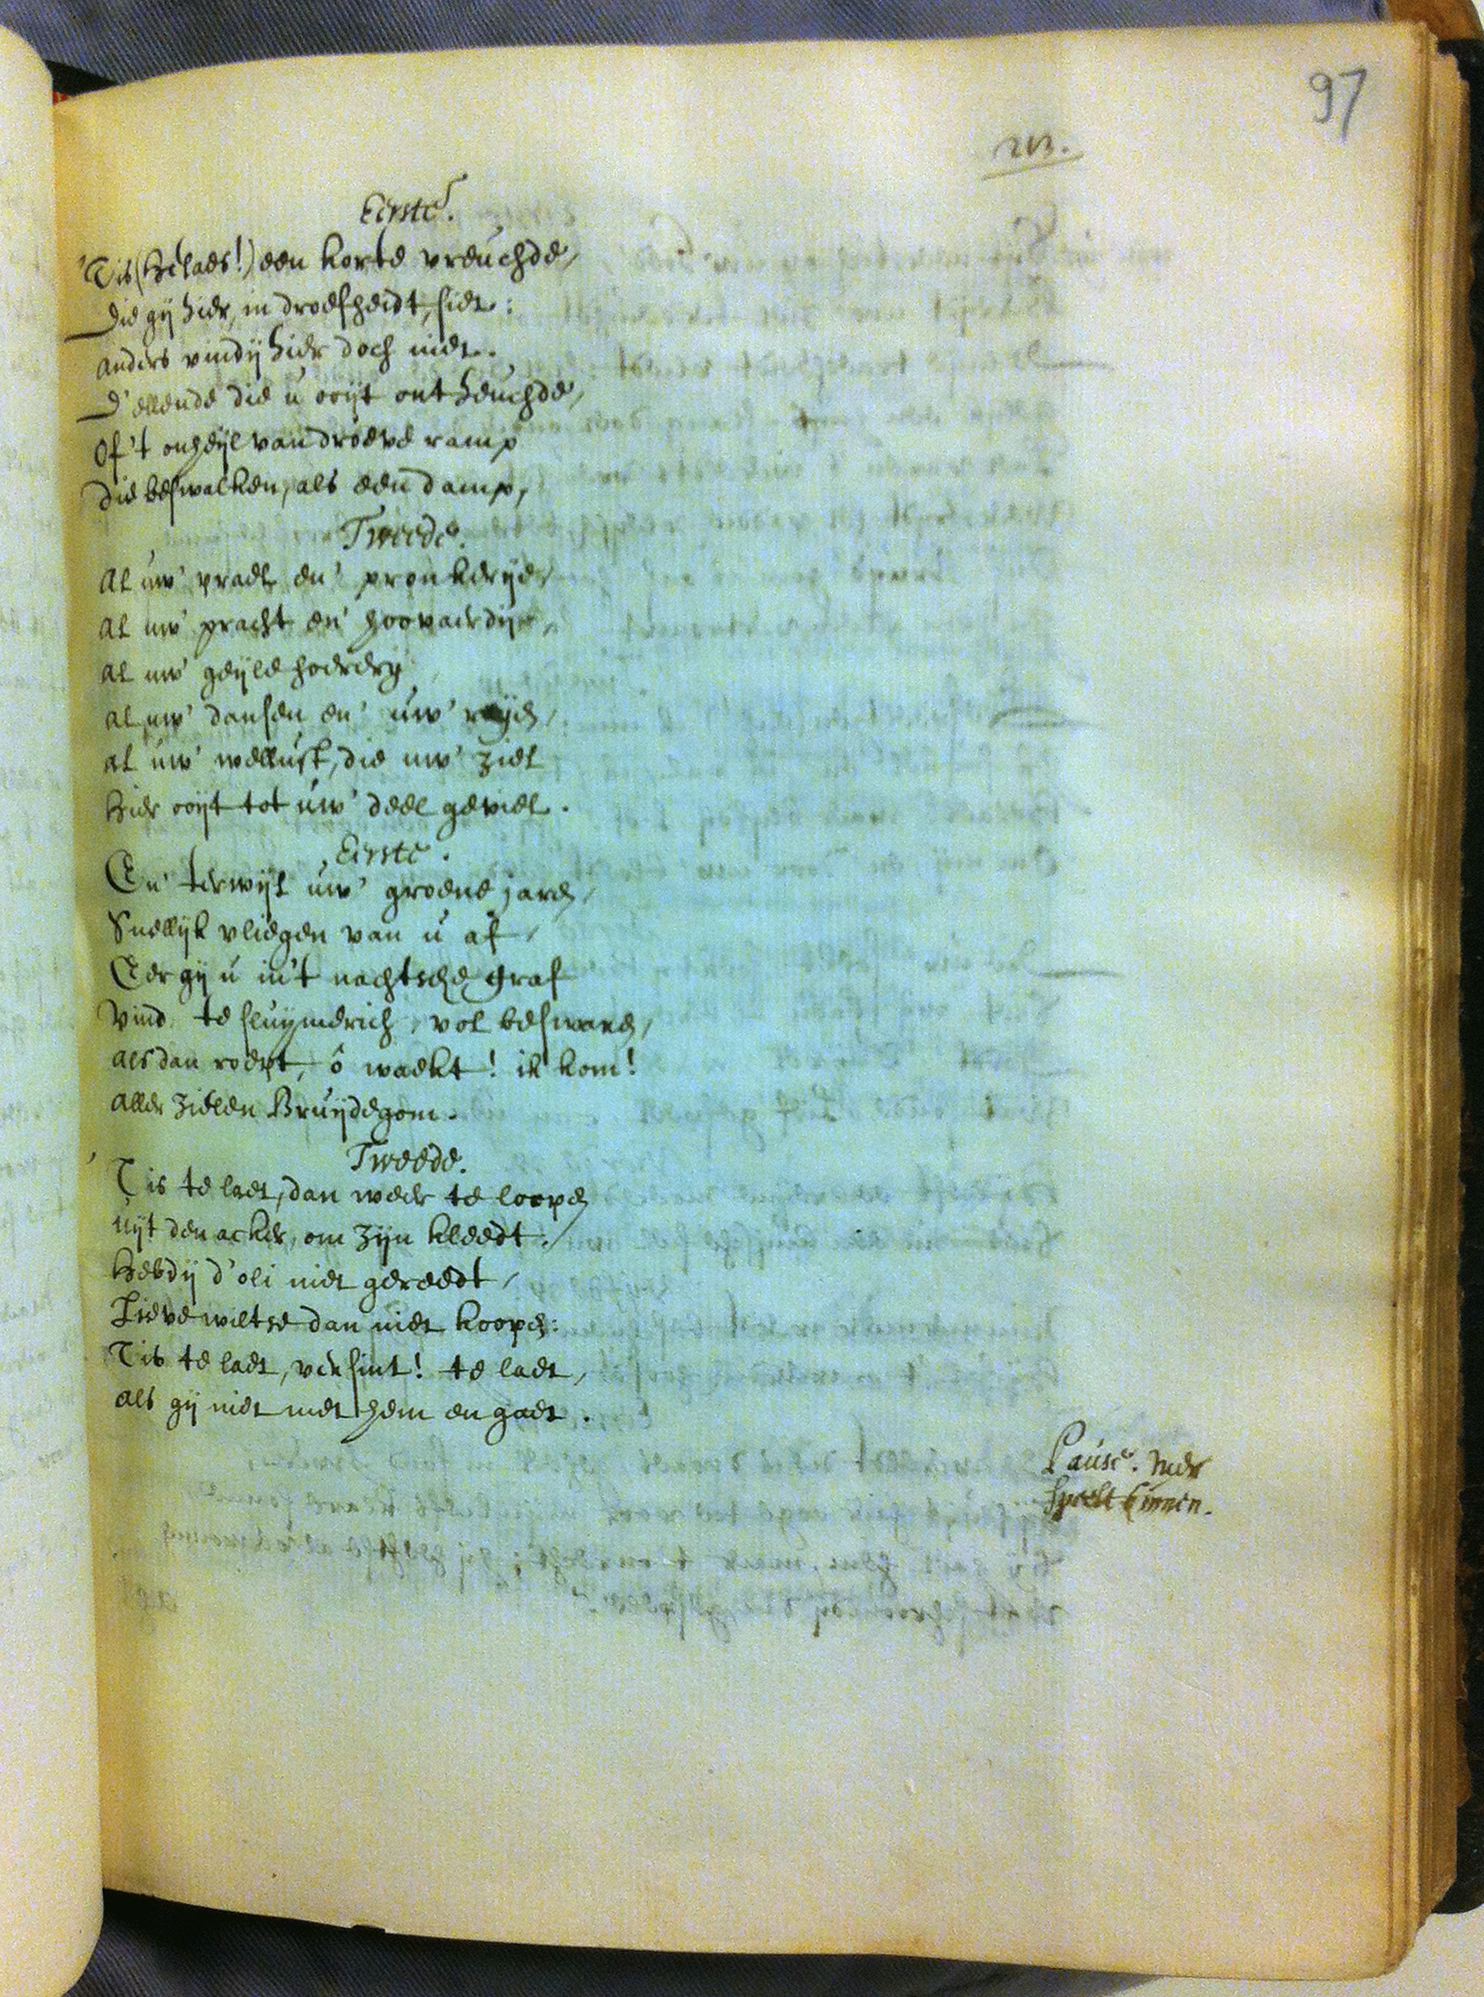 97
213.
Eerste.
'Tis (helaes!) een korte vreuchde,
Die gij hier, in droefheidt, siet:
anders vindij hier doch niet.
D'ellende die u ooijt ontheuchde,
Of 't onheijl van droeve ramp
die beswalken, als een damp,
Tweede.
Al uw' prael en' pronkerije,
Al uw' pracht en' hoovaerdije,
Al uw' geijle hoererij
al uw' dansen en' uw' reijen,
al uw' wellust, die uw' ziel
hier ooijt tot uw' deel geviel.
Eerste.
En' terwijl uw' groene jaren,
Snellijk vliegen van u af,
Eer gij u in't nachtsche graf
vind te sluijmerich, vol beswaren,
als dan roept, ô waekt! ik kom!
aller zielen Bruijdegom.
Tweede.
'Tis te laet, dan weer te loopen
uijt den acker, om zijn kleedt:
Hebdij d'oli niet gereedt,
Lieve wiltse dan niet koopen:
Tis te laet, versint! te laet,
als gij niet met hem en gaet.
Pause. Men
speelt binnen.